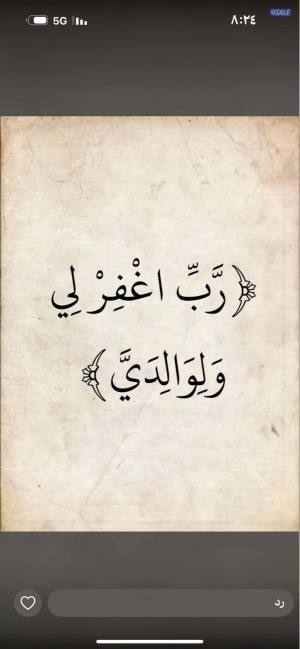 5G
٨:٢٤
4SALE
﴿رَّبِّ اغْفِرْ لِي
وَلِوَالِدَيَّ﴾
رد